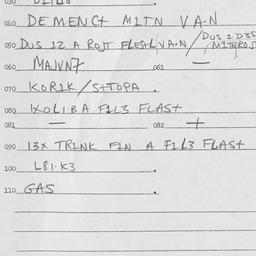 040 DEMENCT M1TN VA·N
050 DUS 12 A ROJT FLESHL VA·N / DUS 1D3S
M1TNROJ
060 MAJVN7 061 —
070 KOR1K / S+TOPA .
080 1XOL1·BA F1L3 FLAS+
081 — 082 +
090 13X TR1NK F1N A F1L3 FLAS+
100 L81·K3 .
110 GAS .